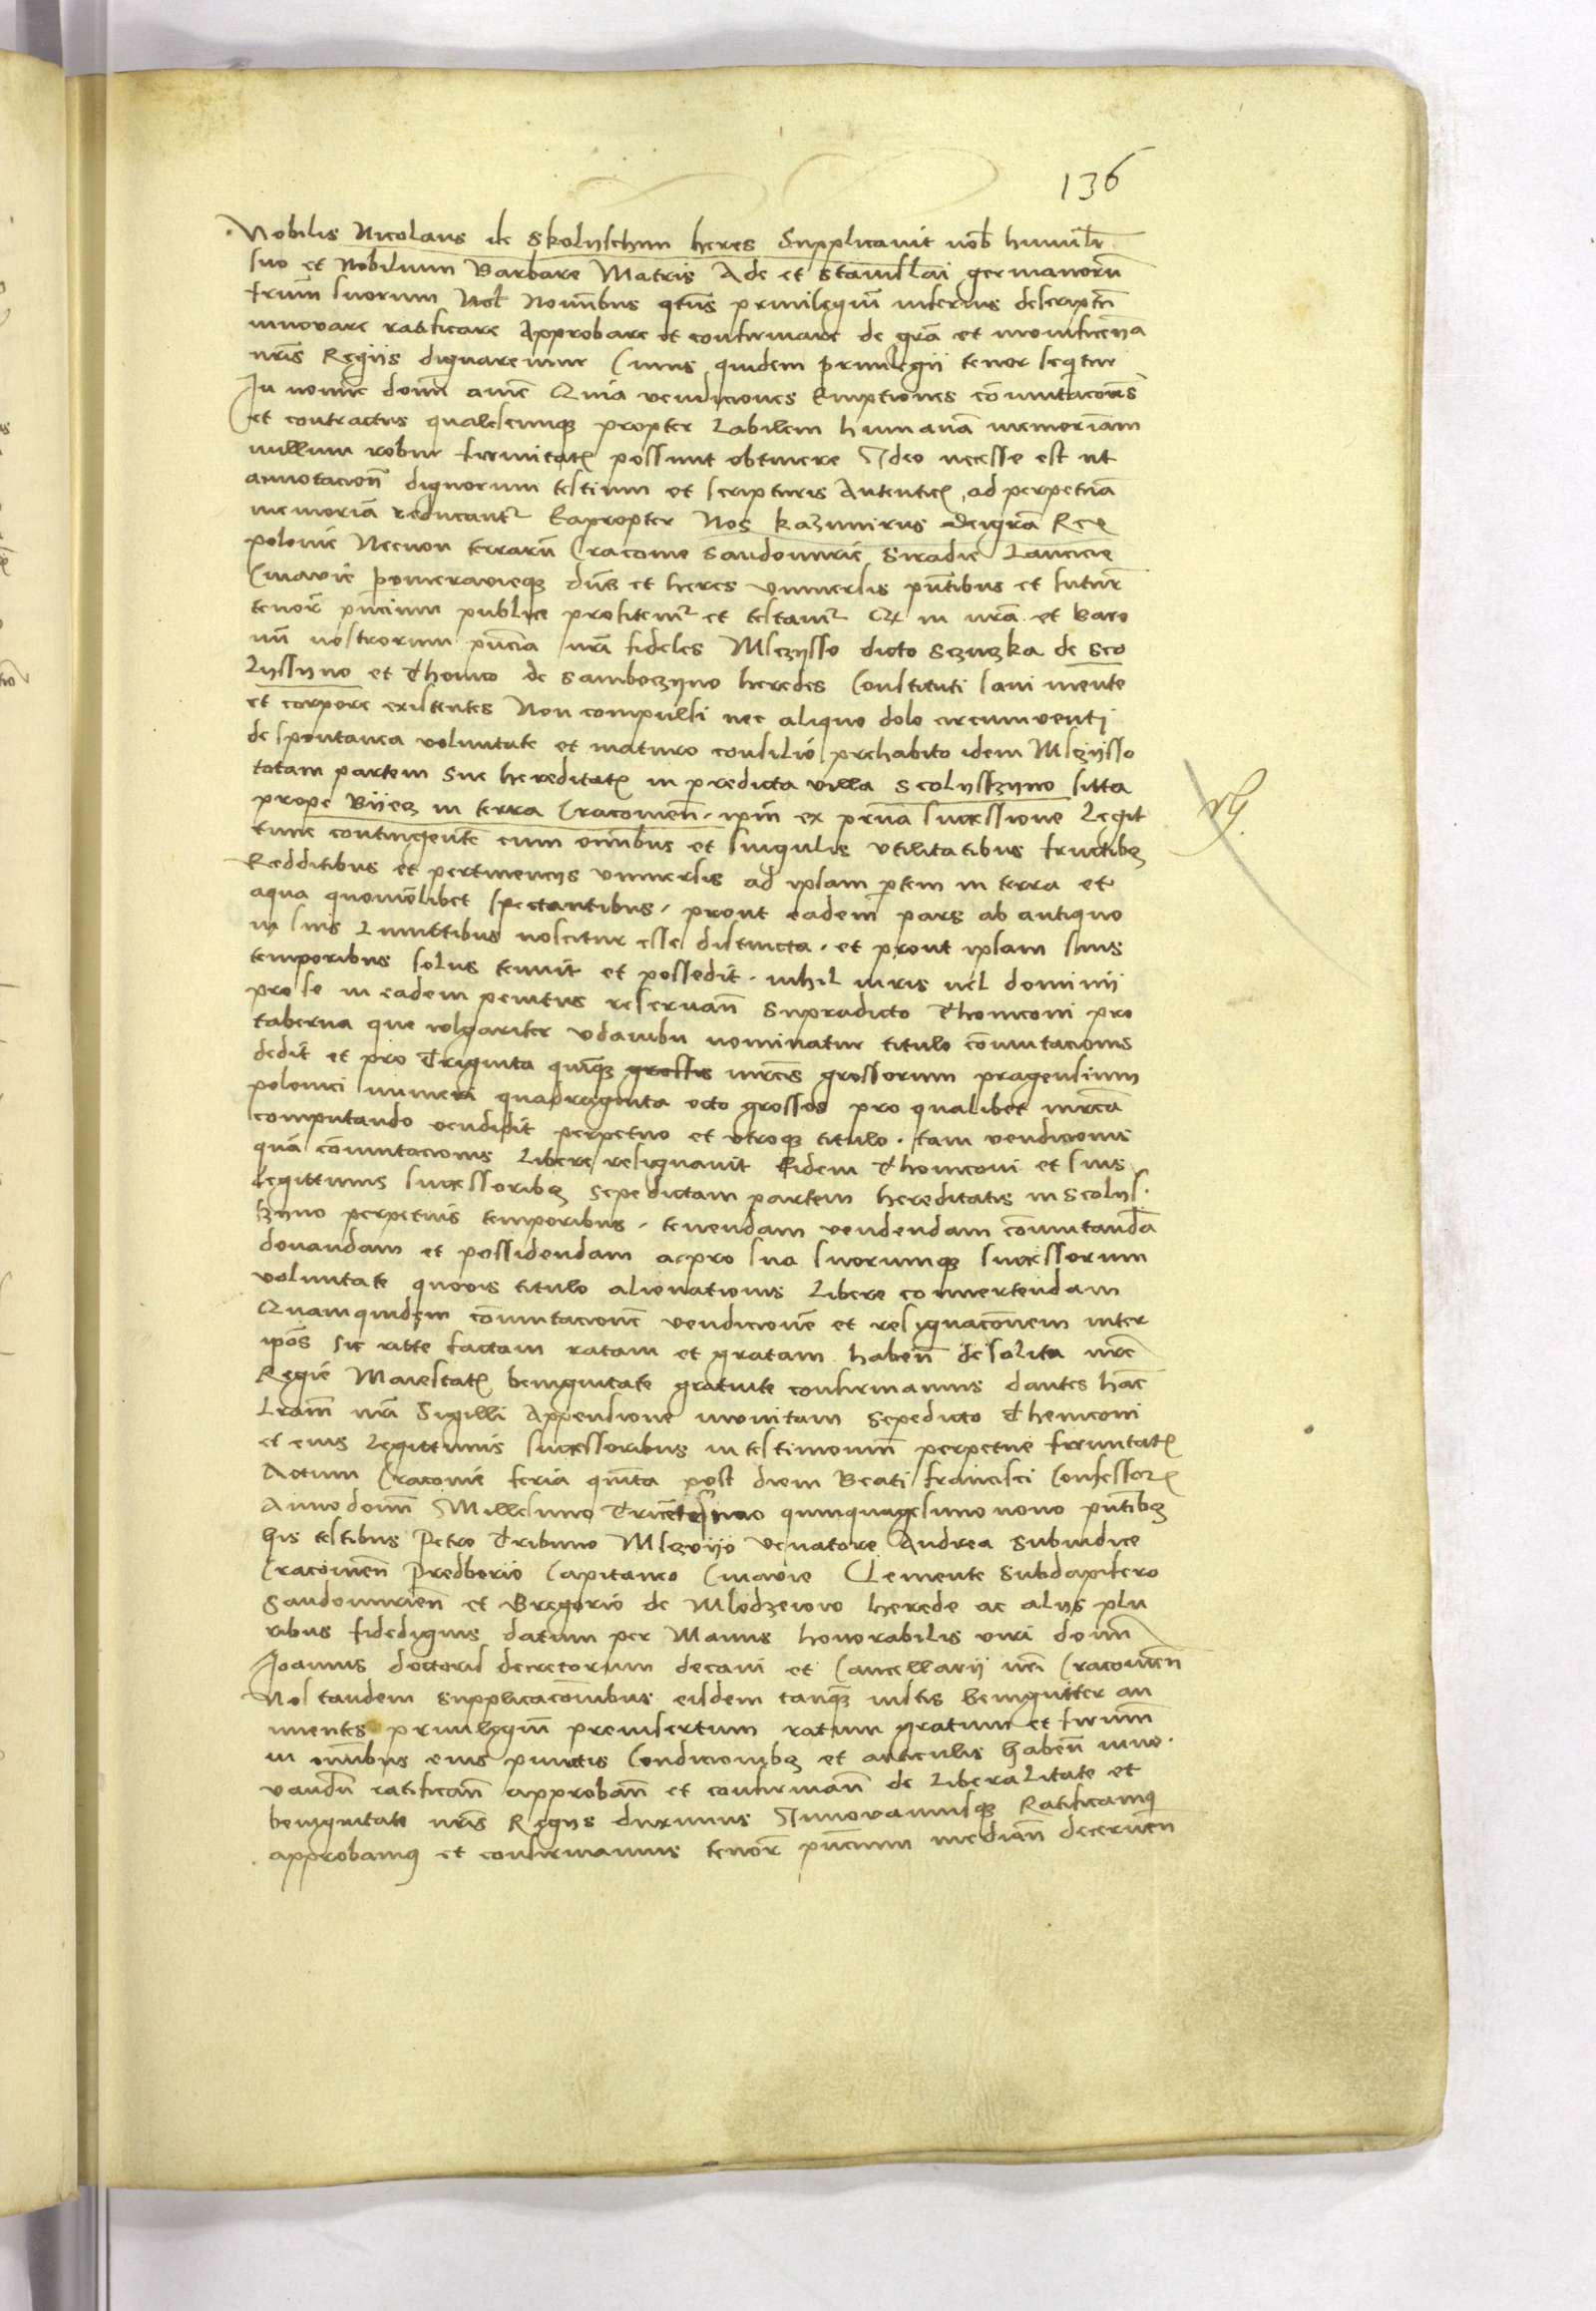 136
Nobilis Nicolaus de Skolyschin heres Supplicavit nob humilr
suo et Nobilium Barbare Matris Ade et Stanislai germanoru
frum suorum Nob Nominbus qtus privilegiu inferius descriptu
innovare ratificare Approbare et confirmare de gra et munificentia
nris Regiis dignaremur Cuius quidem privilegii tenor seqtur
In nomine domi amen Quia vendiciones Emptiones comutacoes
et contractus qualescunq propter Labilem humana memoriam
nullum robur firmitatis possunt obtinere Ideo necesse est ut
annotacion dignorum testium et scripturis Autenticis ad perpetua
memoria reducantur Eapropter Nos kazimirus dei gra Rex
polonie Necnon terraru Cracovie Sandomirie Siradie Lancicie
Cuiavie pomeranieq dns et heres vniversis pntibus et futuris
tenor pncium publice profitemur et testamur Qz in nra et baro
nu nostrorum pncia nri fideles Msczysso dicto Sczuczka de Sco
lyssyno et Thomco de Samboczyno heredes Constituti sani mente
et corpore existentes Non compulsi nec aliquo dolo circumventi
de spontanea voluntate et maturo consilio prehabito idem Msczysso
totam partem Sue hereditatis in predicta villa Scolyszyno sitta
prope Byecz in terra Cracovien ipm ex prna successione Legit
time contingente cum omnibus et singulis vtilitatibus fructibq
Redditibus et pertinencys vniversis ad ipsam ptem in terra et
aqua quomolibet spectantibus prout eadem pars ab antiquo
in suis Limittibus noscitur esse distincta et prout ipsam suis
temporibus solus tenuit et possedit nihil iuris vel dominii
pro se in eadem penitus reservan Supradicto Thomconi pro
taberna que wlgariter vdambu nominatur titulo comutacionis
dedit et pro Triginta quinq grossis mrcis grossorum pragensium
polonici numeri quadraginta octo grossos pro qualibet mrca
computando vendidit perpetuo et vtroq titulo tam vendicionis
qua comutacionis Libere resignavit Eidem Thomconi et suis
Legittimis successoribq Sepedictam partem hereditatis in Scolys
zyno perpetuis temporibus tenendam vendendam comutanda
donandam et possidendam ac pro sua suorumq successorum
voluntate quovis titulo alienationis Libere convertendam
Quamquidem comutacione vendicione et resignacoem inter
ipos sic ritte factam ratam et gratam haben de solita nre
Regie Maiestatis benignitate gratuite confirmamus dantes hac
Lram nri Sigilli Appensione munitam Sepedicto Themconi
et eius Legittimis successoribus in testimonium perpetue firmitatis
Actum Cracovie feria quita post diem Beati francisci Confessoris
Anno domi Millesimo Tricetesimo quinquagesimo nono pntibq
his testibus Petro Tribuno Msczvyo Venatore Andrea Subiudice
Cracovien Predborio Capitaneo Cuiavie Clemente Subdapifero
Sandomirien et Gregorio de Mlodzeiovo herede ac alys plu
ribus fidedignis datum per Manus honorabilis viri domi
Joannis doctoris decretorum decani et Cancellarii nri Cracovien
Nos tandem Supplicacoibus eisdem tanq iustis benignitter an
nuentes privilegiu preinsertum ratum gratum et firmu
in omibus eius punctis Condicionibq et articulis haben inno
vandu ratifican approban et confirman de Liberalitate et
benignitate nris Regys duximus Innovamusq Ratificamq
approbamq et confirmamus tenor pncium median decernen